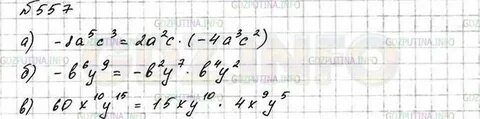 №557
а) -8a⁵c³ = 2a²c · (-4a³c²)
б) -b⁶y⁹ = -b²y⁷ · b⁴y²
в) 60x¹⁰y¹⁵ = 15xy¹⁰ · 4x⁹y⁵